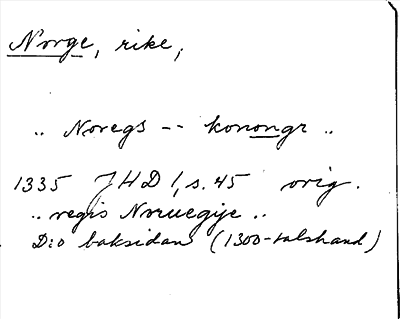 Norge, rike,
.. Noregs -- konongr ..
1335 JHD 1, s. 45 orig.
.. regis Noruegije ..
D:o baksidan (1300-talshand)